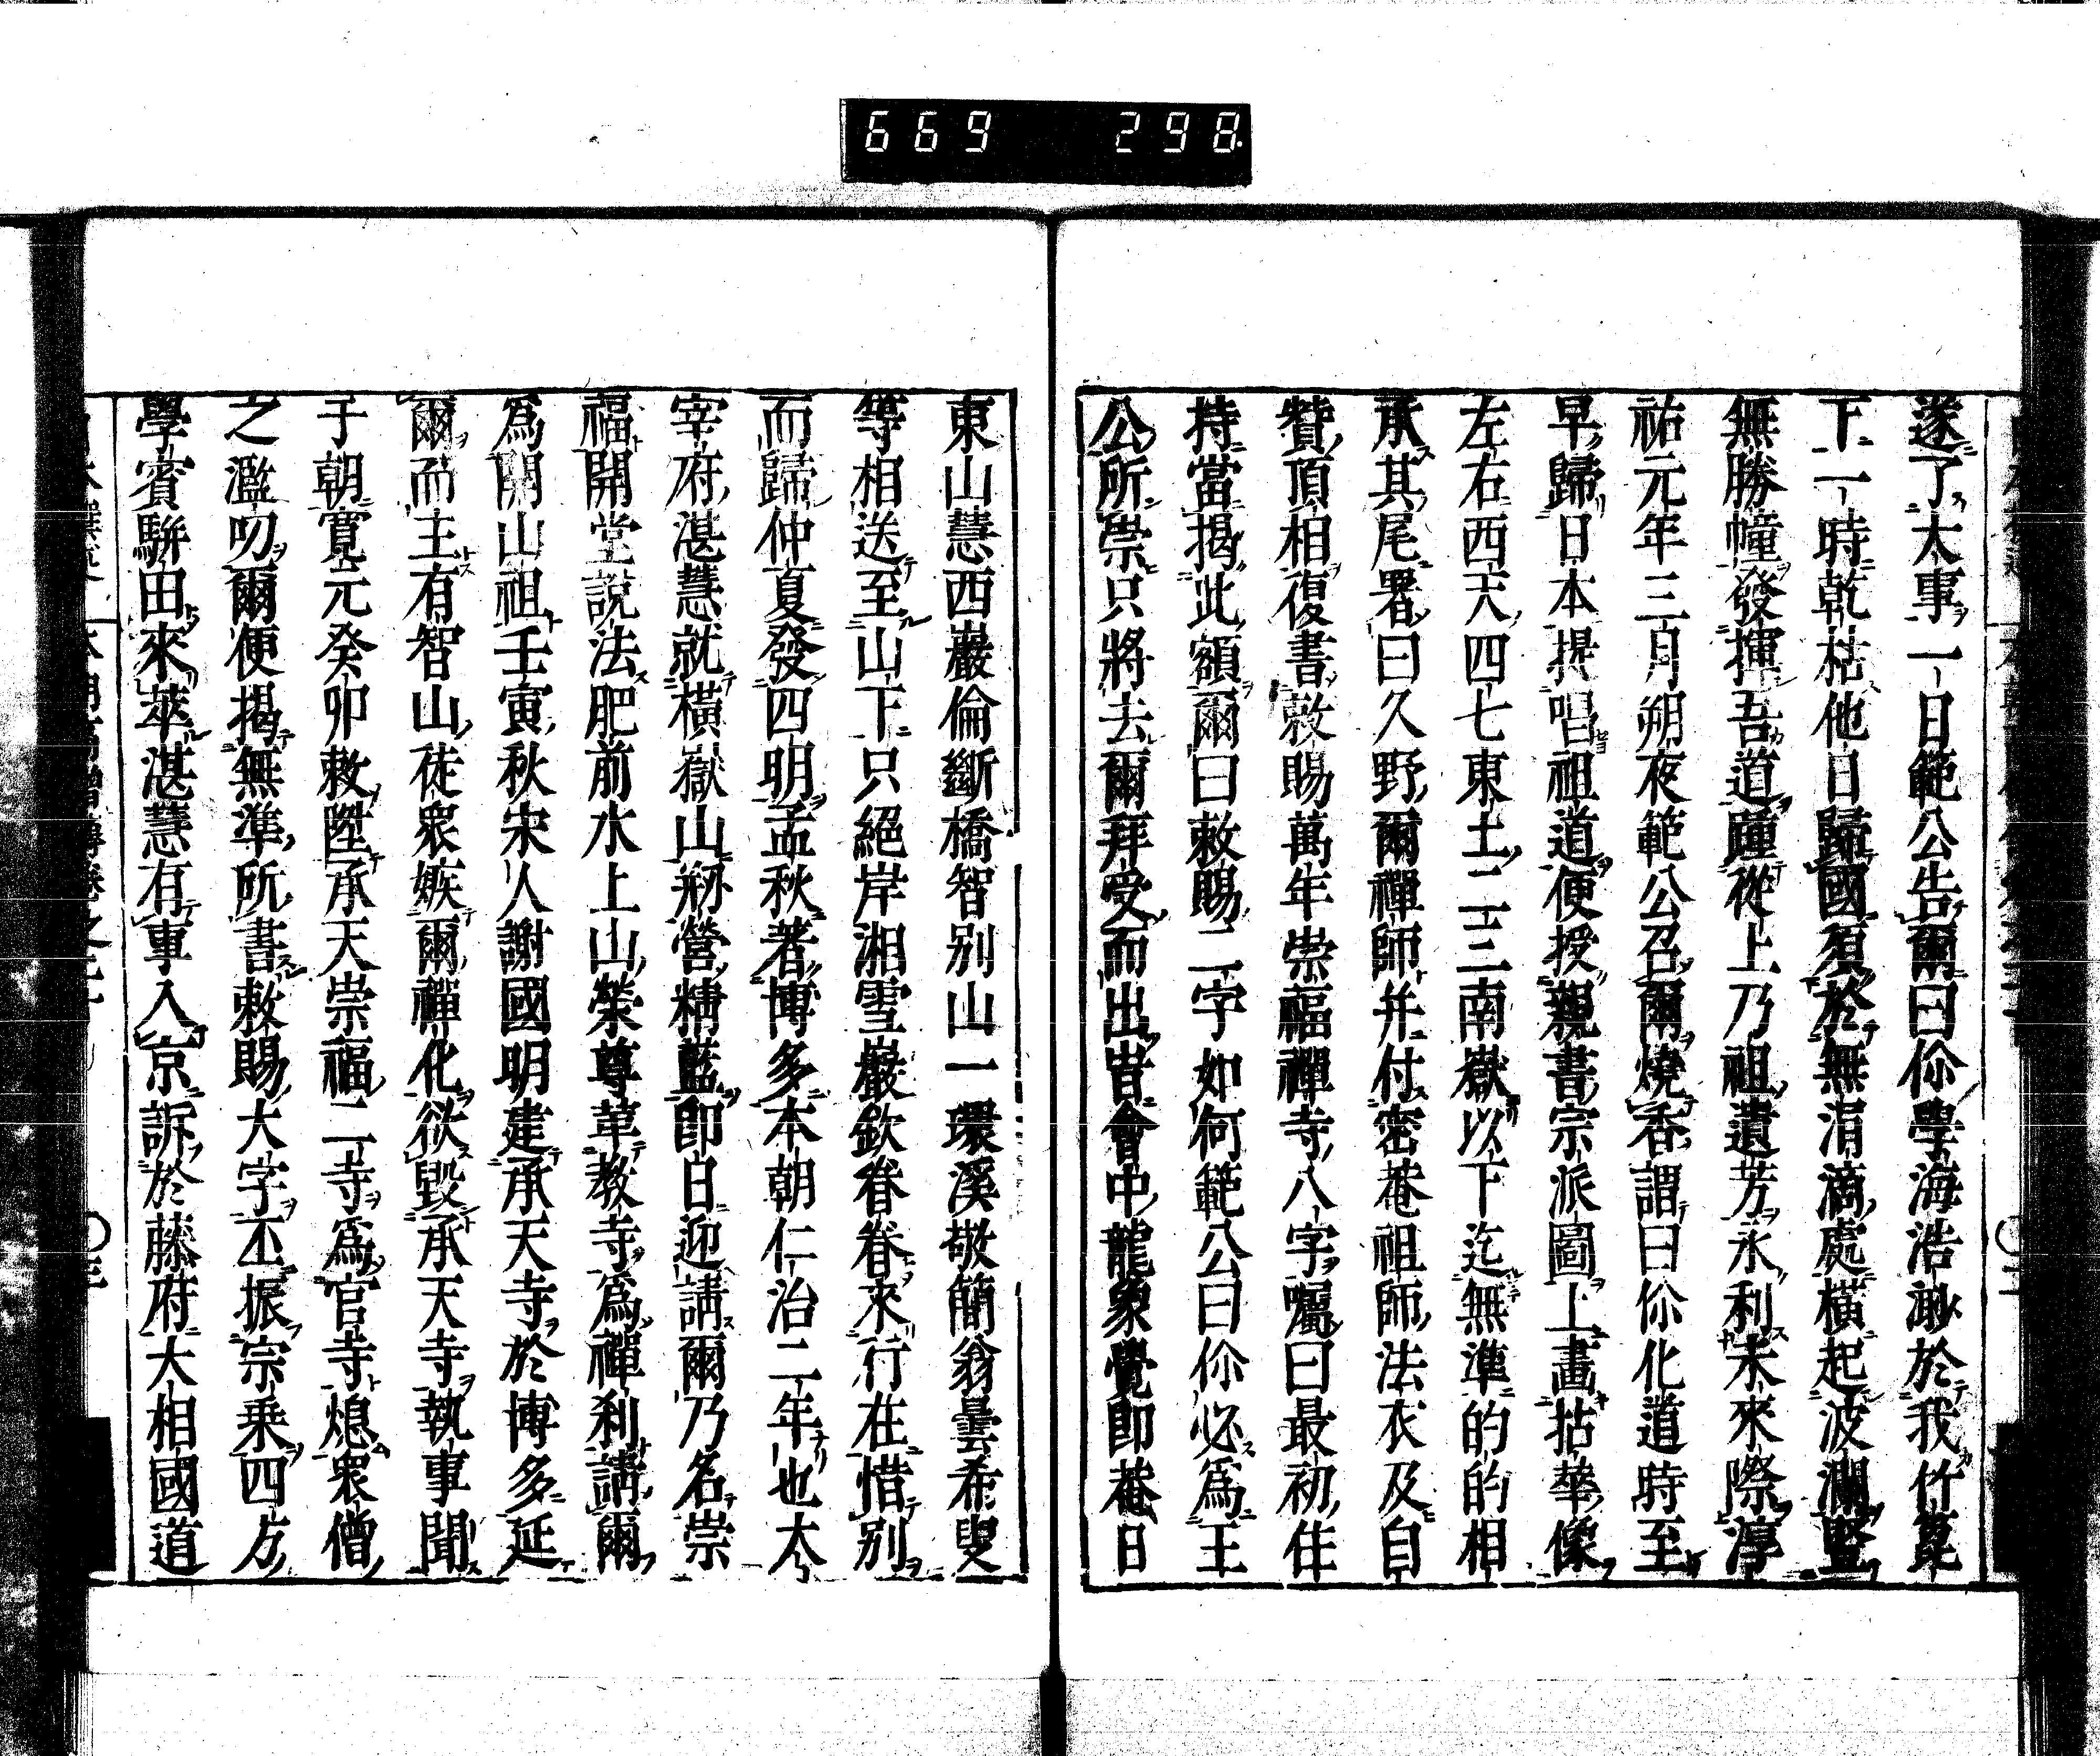 669 298
遂了大事一日範公告爾曰你學海浩渺於我竹篦
下一時乾枯他日歸國須於無涓滴處橫起波瀾豎
無勝幢發揮吾道踵從上乃祖遺芳永利未來際淳
祐元年三月朔夜範公召爾燒香謂曰你化道時至
早歸日本提唱祖道便授親書宗派圖上畫拈華像
左右西天四七東土二三南嶽以下迄無準的的相
承其尾署曰久野爾禪師并付密菴祖師法衣及自
贊頂相復書敕賜萬年崇福禪寺八字囑曰最初住
持當揭此額爾曰敕賜二字如何範公曰你必爲王
公所崇只將去爾拜受而出皆會中龍象覺即菴日
東山慧西巖倫斷橋智別山一環溪敬簡翁曇希叟
等相送至山下只絕岸湘雪巖欽眷眷來行在惜別
而歸仲夏發四明孟秋著博多本朝仁治二年也太
宰府湛慧就橫嶽山剏營精藍即日迎請爾乃名崇
福開堂說法肥前水上山榮尊革教寺爲禪利請爾
爲開山祖壬寅秋宋人謝國明建承天寺於博多延
爾而主有智山徒衆嫉爾禪化欲毀承天寺執事聞
于朝寬元癸卯敕陞承天崇福二寺爲官寺熄衆僧
之濫叨爾便揭無準所書敕賜大字丕振宗乘四方
學賓駢田來萃湛慧有事入京訴於藤府大相國道